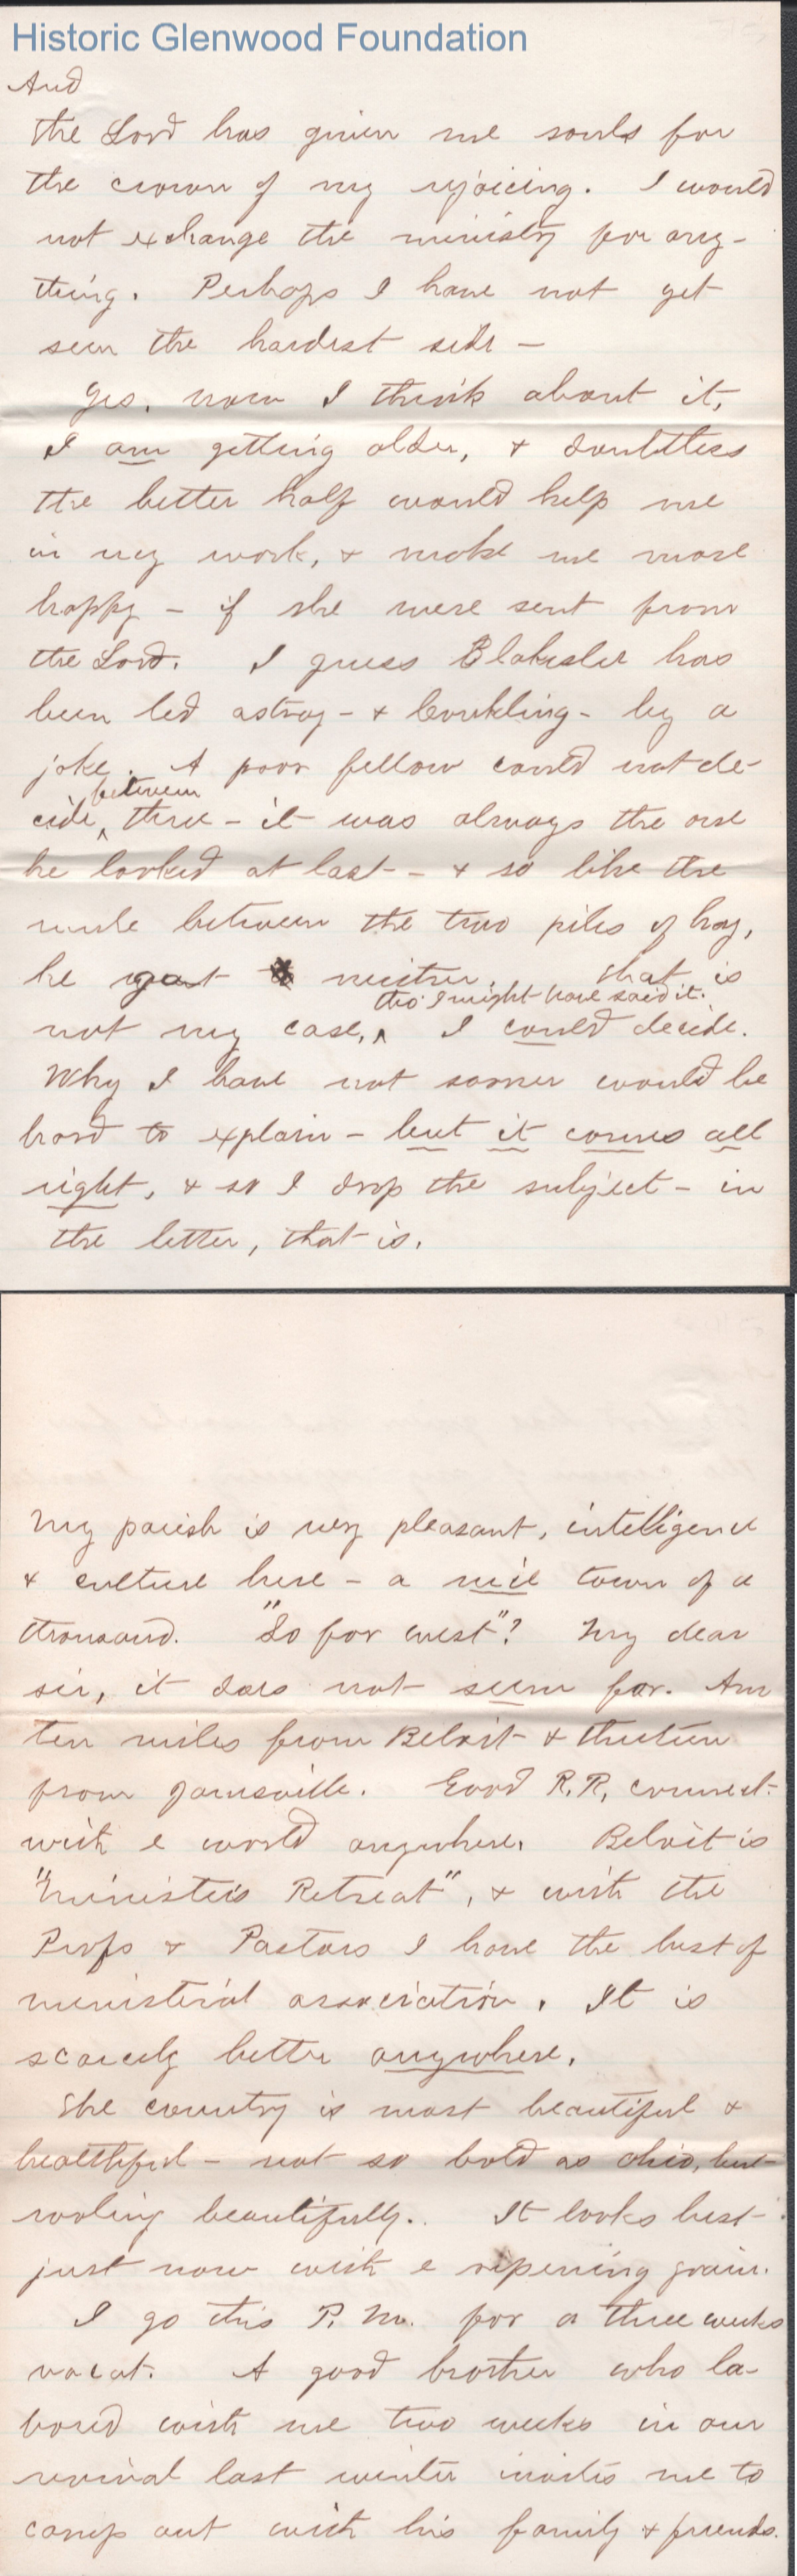 Historic Glenwood Foundation
And
the Lord has given me souls for
the crown of my rejoicing. I would
not exchange the ministry for any-
thing. Perhaps I have not yet
seen the hardest side -
Yes, now I think about it,
I am getting older, & doubtless
the better half would help me
in my work, & make me more
happy - if she were sent from
the Lord. I guess Blakeslee has
been led astray - & Conkling - by a
joke. A poor fellow could not de-
between
cide three - it was always the one
he looked at last - & so like the
mule between the two piles of hay,
he got neither. That is
tho' I might have said it.
not my case, I could decide.
Why I have not sooner would be
hard to explain - but it comes all
right, & so I drop the subject - in
the letter, that is.
My parish is very pleasant, intelligence
& culture here - a nice town of a
thousand. "So far west"? My dear
sir, it does not seem far. Am
ten miles from Beloit & thirteen
from Janesville. Good R.R, connect.
with e world anywhere. Beloit is
"Minister's Retreat", & with the
Profs & Pastors I have the best of
ministerial association. It is
scarcely better anywhere.
The country is most beautiful &
healthful - not so bold as Ohio, but
rooling beautifully. It looks best
just now with e ripening grain.
I go this P.M. for a three weeks
vacat. A good brother who la-
bored with me two weeks in our
revival last winter invites me to
camp out with his family & friends.